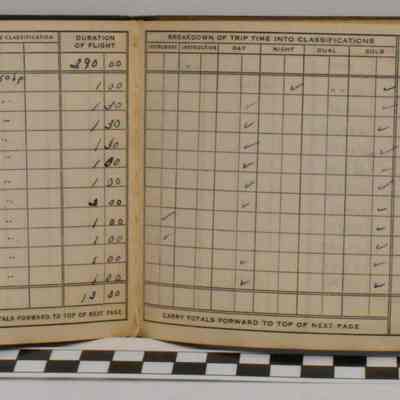 CLASSIFICATION DURATION OF FLIGHT
BREAKDOWN OF TRIP TIME INTO CLASSIFICATIONS
INSTRUMENT INSTRUCTION DAY NIGHT DUAL SOLO
290 00
1 00 ✓ ✓
" 1 30 ✓ ✓
" 1 30 ✓ ✓
" 1 30 ✓ ✓
" 1 30 ✓ ✓
" 1 00 ✓ ✓
" 2 00 ✓ ✓
" 1 00 ✓ ✓
" 1 00 ✓ ✓
" 1 00 ✓ ✓
" 1 00 ✓ ✓
13 30
TOTALS FORWARD TO TOP OF NEXT PAGE
CARRY TOTALS FORWARD TO TOP OF NEXT PAGE